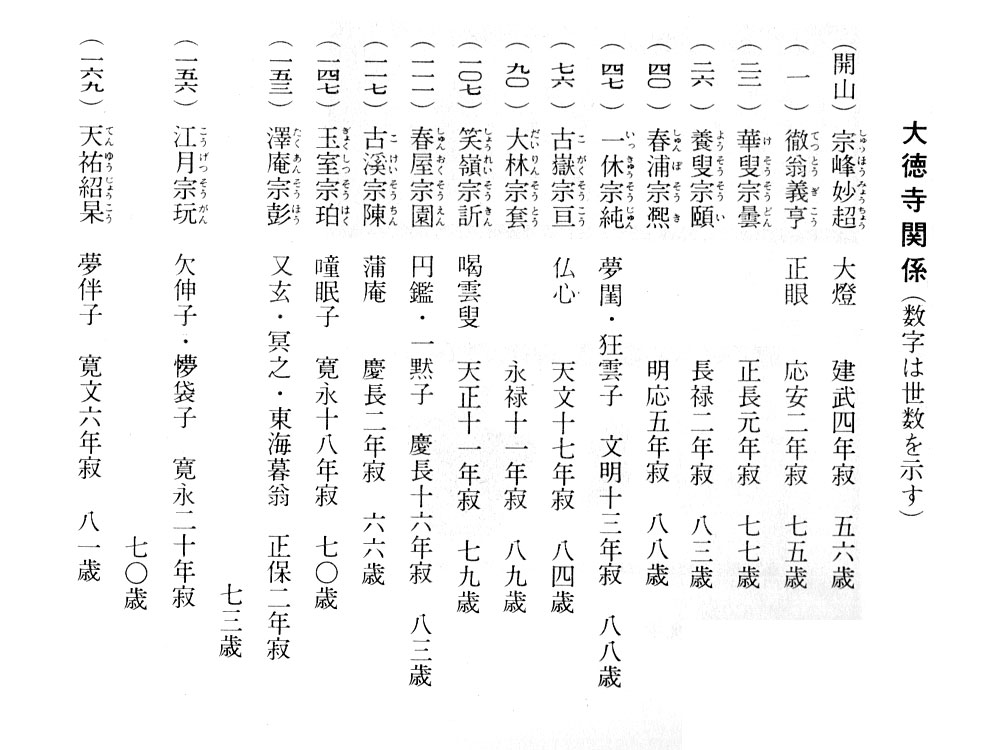 大徳寺関係(数字は世数を示す)
(開山) 宗峰妙超 大燈 建武四年寂 五六歳
(一) 徹翁義亨 正眼 応安二年寂 七五歳
(二二) 華叟宗曇 正長元年寂 七七歳
(二六) 養叟宗頤 長禄二年寂 八三歳
(四〇) 春浦宗熈 明応五年寂 八八歳
(四七) 一休宗純 夢閨・狂雲子 文明十三年寂 八八歳
(七六) 古嶽宗亘 仏心 天文十七年寂 八四歳
(九〇) 大林宗套 永禄十一年寂 八九歳
(一〇七) 笑嶺宗訢 喝雲叟 天正十一年寂 七九歳
(一一一) 春屋宗園 円鑑・一黙子 慶長十六年寂 八三歳
(一一七) 古溪宗陳 蒲庵 慶長二年寂 六六歳
(一四七) 玉室宗珀 曈眠子 寛永十八年寂 七〇歳
(一五三) 澤庵宗彭 又玄・冥之・東海暮翁 正保二年寂
七三歳
(一五六) 江月宗玩 欠伸子・懜袋子 寛永二十年寂
七〇歳
(一六九) 天祐紹杲 夢伴子 寛文六年寂 八一歳